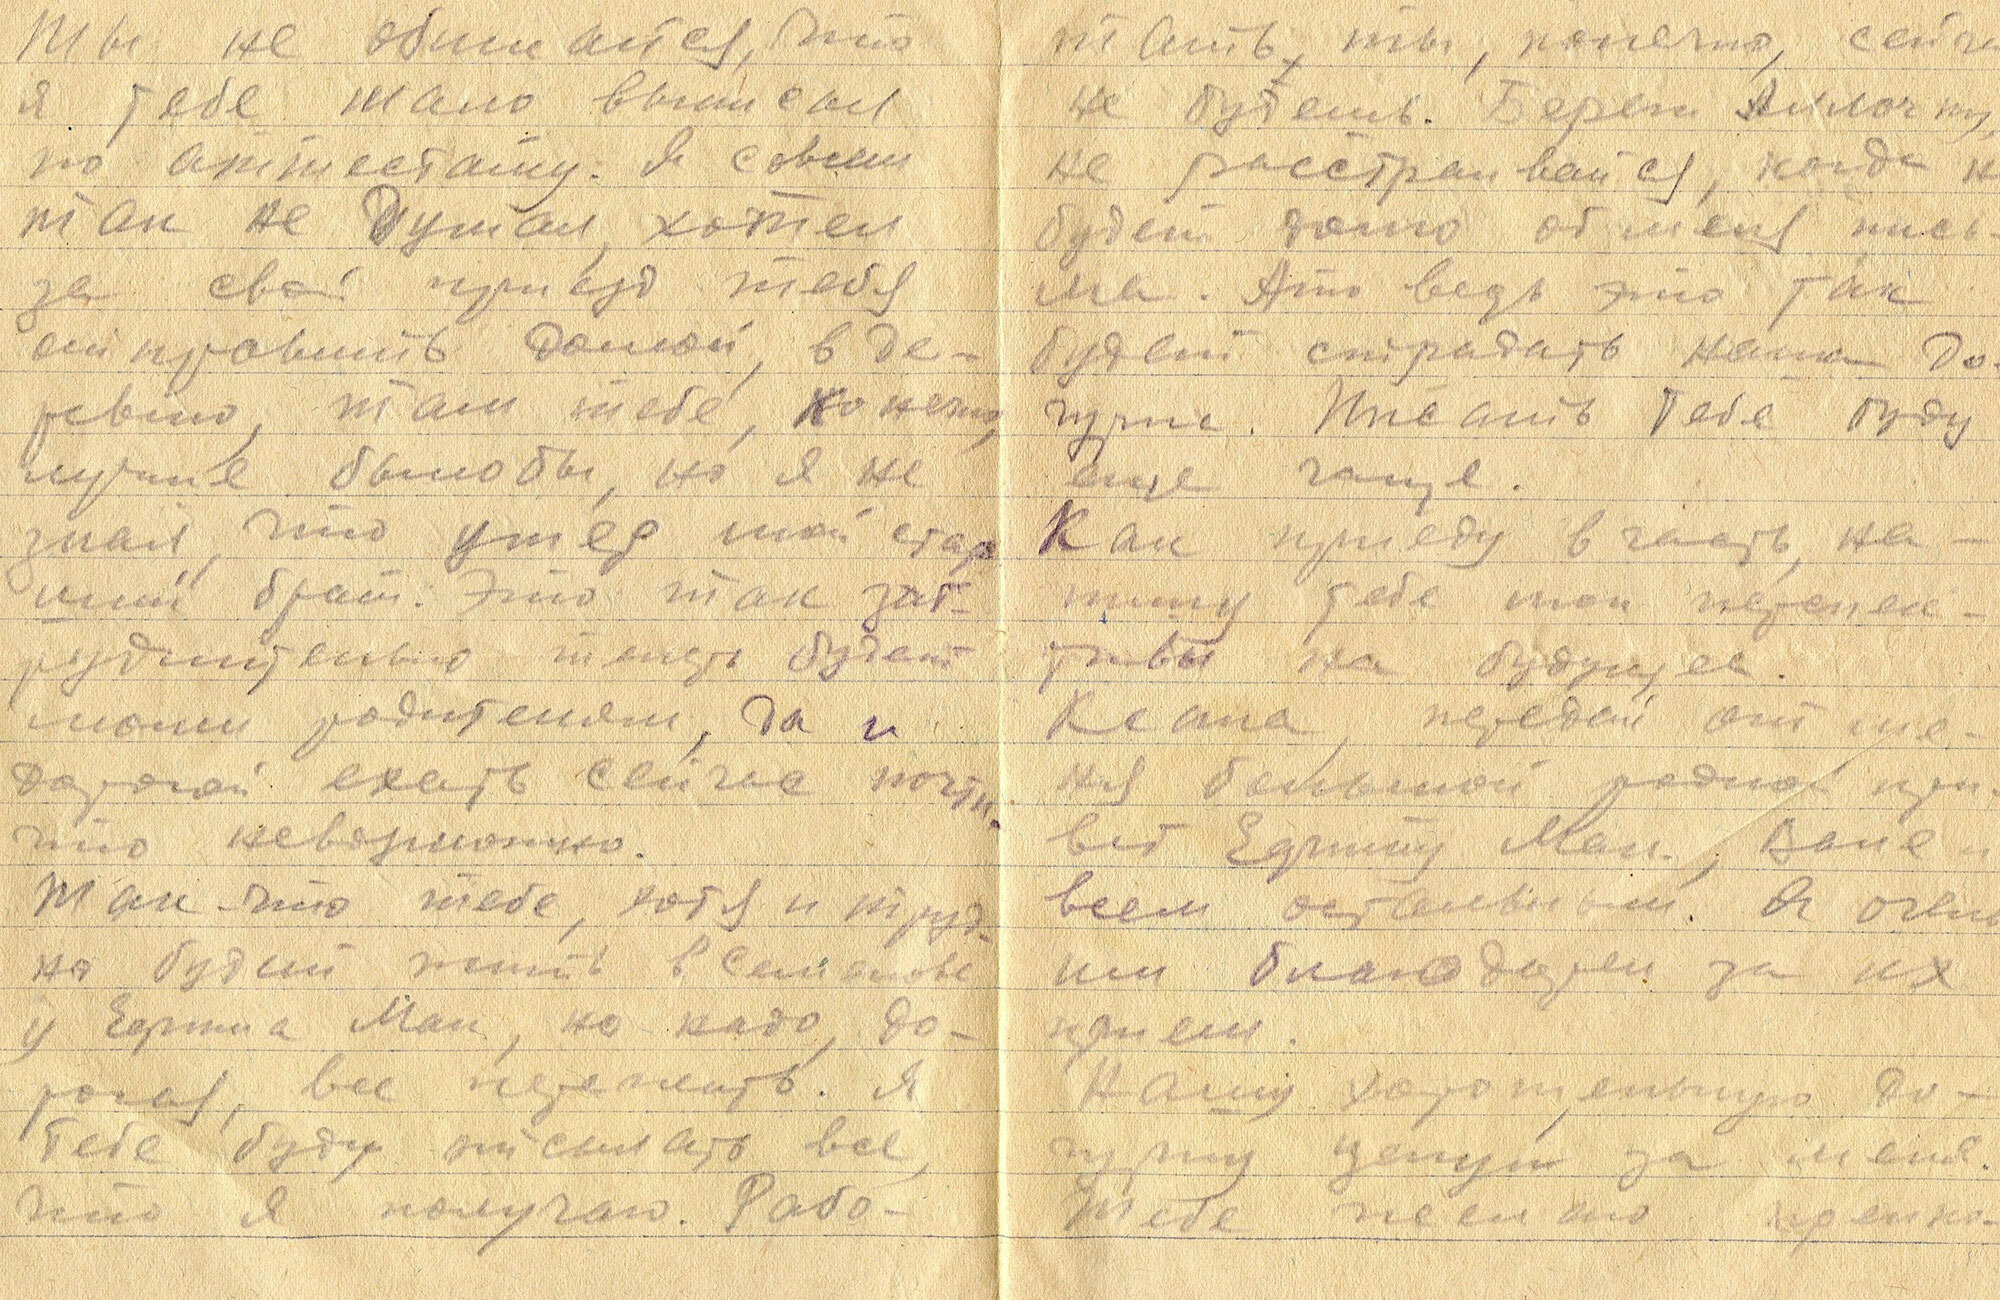 Ты не обижайся, что
я тебе мало выписал
по аттестату. Я совсем
так не думал, хотел
за свой приезд тебя
отправить домой, в де-
ревню, там тебе, конечно,
лучше было бы, но я не
знал, что умер мой стар
ший брат. Это так зат-
руднительно теперь будет
моим родителям, да и
дорогой ехать сейчас почти
что невозможно.
Так-что тебе, хотя и труд-
но будет жить в Семенове
у Ефима Мак, но надо, до-
рогая, все пережить. Я
тебе буду высылать все,
что я получаю. Рабо-
тать, ты, конечно, сейча
не будешь. Береги Аллочку,
не расстраивайся, когда н
будет долго от меня пись-
ма. Ато ведь это так
будет страдать наша до-
чурка. Писать тебе буду
еще чаще.
Как приеду в часть, на-
пишу тебе мои перспек-
тивы на будущее.
Ксана, передай от ме-
ня большой родной при-
вет Ефиму Мак., Ване и
всем остальным. Я очень
им благодарен за их
прием.
Нашу хорошенькую до-
чурку целуй за меня.
Тебе желаю крепко-